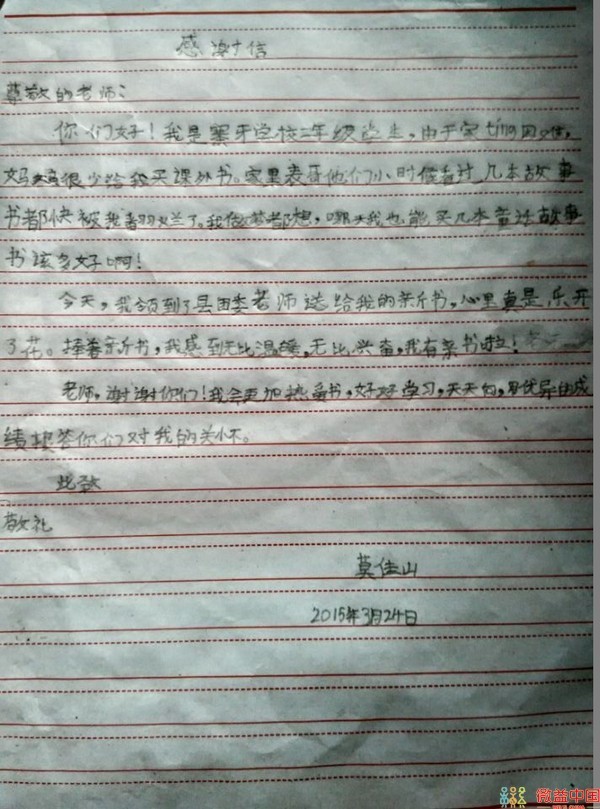 感谢信
尊敬的老师：
你们好！我是寨牙学校二年级学生，由于家ting困难，
妈妈很少给我买课外书。家里表哥他们小时候看过几本故事
书都快被我翻烂了。我做梦都想，哪天我也能买几本童话故事
书该多好啊！
今天，我领到了县团委老师送给我的新书，心里真是乐开
了花。捧着新书，我感到无比温暖，无比兴奋，我有新书啦！
老师，谢谢你们！我会更加热爱书，好好学习，天天向，用优异的成
绩报答你们对我的关怀。
此致
敬礼
莫佳山
2015年3月24日
微益中国